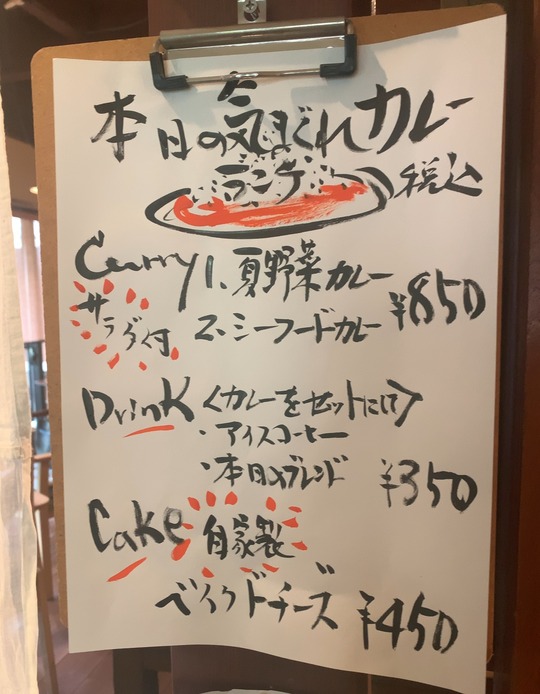 本日の気まぐれカレー
ランチ 税込
Curry 1. 夏野菜カレー
サラダ付 2. シーフードカレー ¥850
Drink <カレーをセットにして>
・アイスコーヒー
・本日のブレンド ¥350
Cake 自家製
ベイクドチーズ ¥450